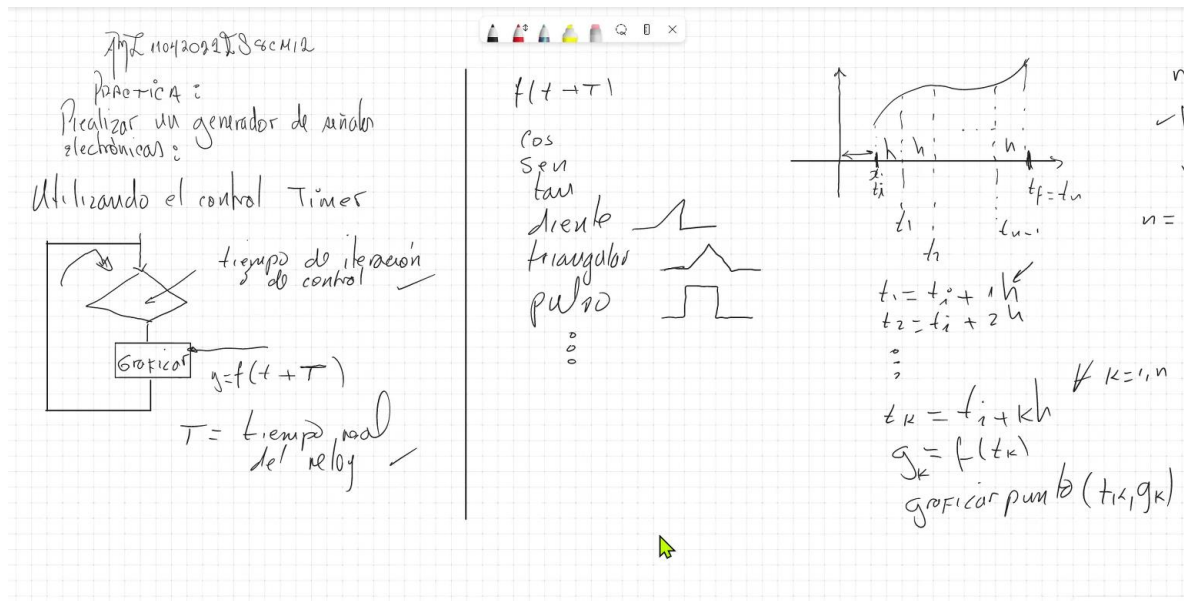 PRACTICA:
Realizar un generador de señales
electrónicas:
Utilizando el control Timer
tiempo de iteración
de control
Graficar
y=f(t+T)
T= tiempo real
del reloj
f(t+T)
cos
sen
tan
diente
triangular
pulso
h h h
ti
t1
t2
tn-1
tf=tn
n=
t1=ti+1h
t2=ti+2h
tk=ti+kh
∀ k=1,n
yk=f(tk)
graficar punto(tk,yk)